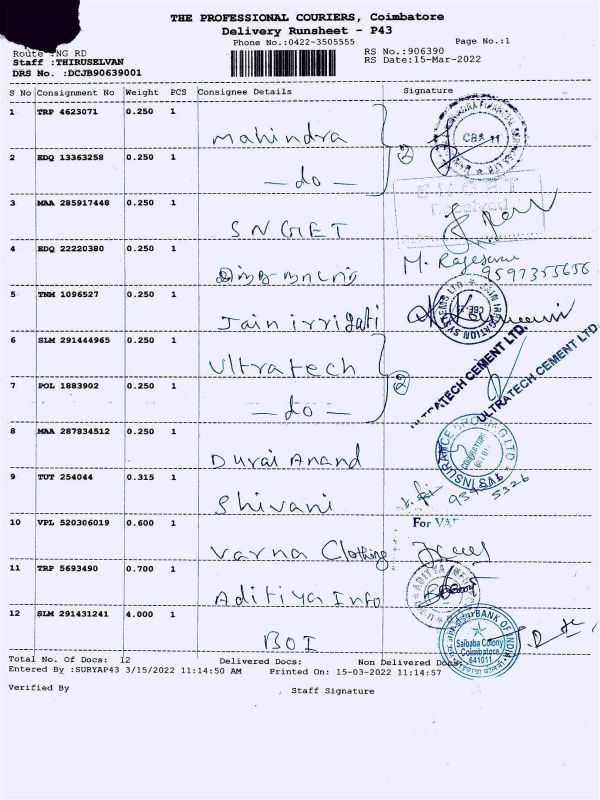 THE PROFESSIONAL COURIERS, Coimbatore
Delivery Runsheet - P43
Phone No.:0422-3505555 Page No.:1
Route :NG RD RS No.:906390
Staff :THIRUSELVAN RS Date:15-Mar-2022
DRS No. :DCJB90639001
S No Consignment No Weight PCS Consignee Details Signature
1 TRP 4623071 0.250 1 Mahindra
CBA 11
2 EDQ 13363258 0.250 1 — do — 2
3 MAA 285917448 0.250 1 SNGIET
Received
4 EDQ 22220380 0.250 1 இந்து நாடார் M. Rajeswari
9597355656
5 TNM 1096527 0.250 1 Jain irrigati
JAIN IRRIGATION SYSTEMS LTD CBE
6 SLM 291444965 0.250 1 Ultratech
ULTRATECH CEMENT LTD.
7 POL 1883902 0.250 1 — do — 2
ULTRATECH CEMENT LTD.
8 MAA 287834512 0.250 1 Durai Anand
INSURANCE BROKING LTD COIMBATORE
9 TUT 254044 0.315 1 Shivani
5326
10 VPL 520306019 0.600 1 Varna Clothing
For VAR
11 TRP 5693490 0.700 1 Aditiya Info
12 SLM 291431241 4.000 1 BOI
BANK OF INDIA
Saibaba Colony
Coimbatore
641011
Total No. Of Docs: 12 Delivered Docs: Non Delivered Docs:
Entered By :SURYAP43 3/15/2022 11:14:50 AM Printed On: 15-03-2022 11:14:57
Verified By Staff Signature